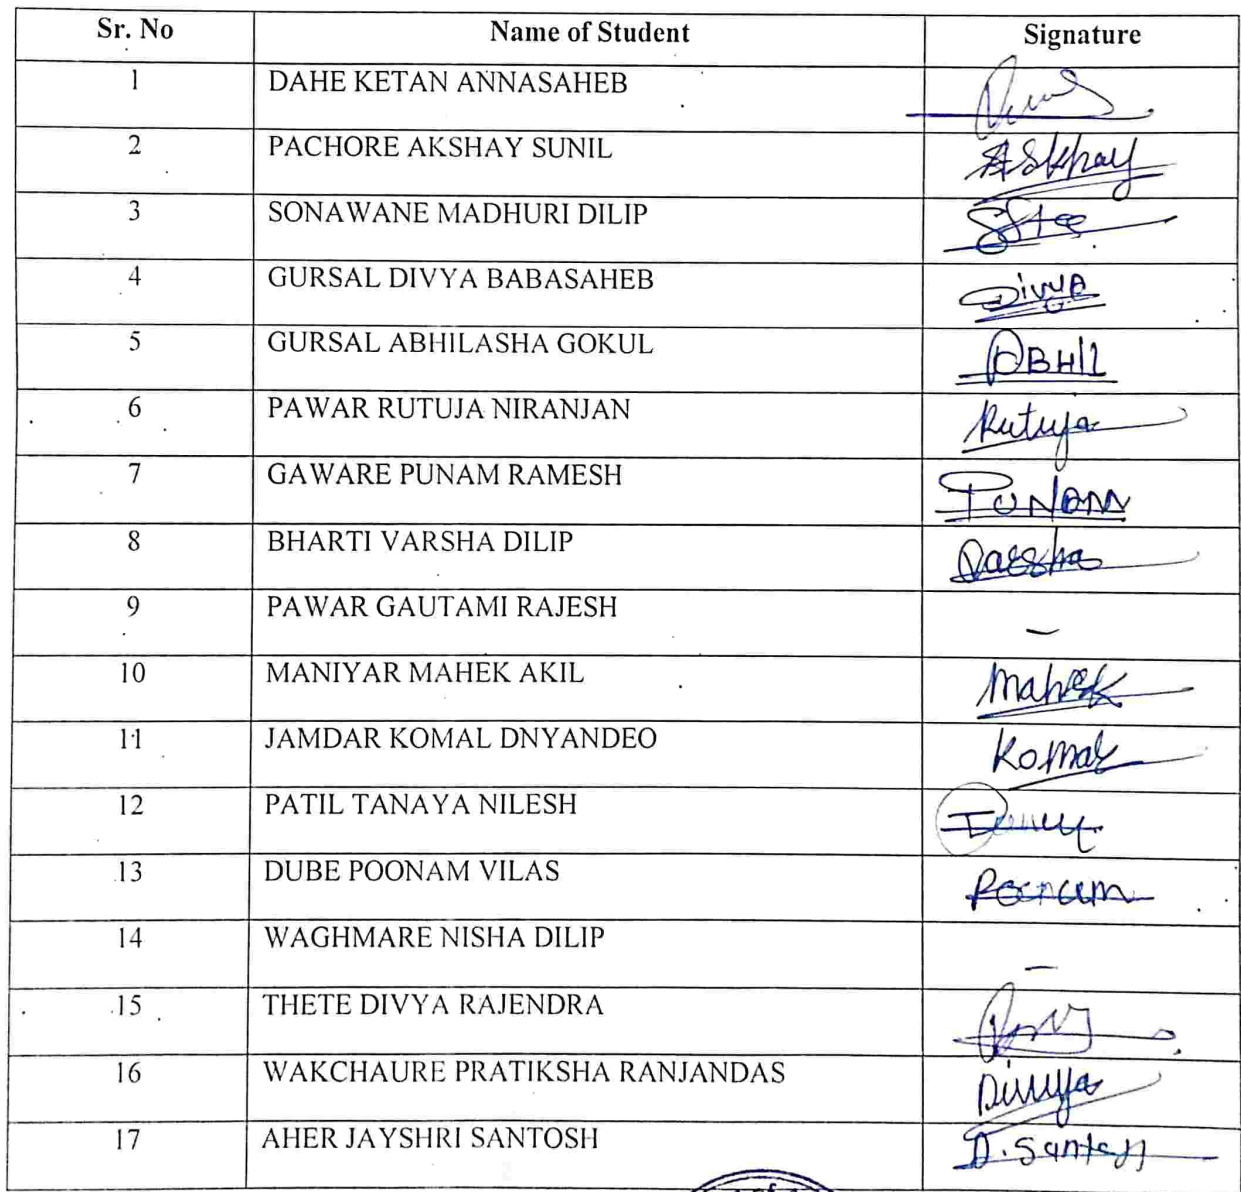 Sr. No Name of Student Signature
1 DAHE KETAN ANNASAHEB
2 PACHORE AKSHAY SUNIL Askhay
3 SONAWANE MADHURI DILIP
4 GURSAL DIVYA BABASAHEB Divya
5 GURSAL ABHILASHA GOKUL ABHIL
6 PAWAR RUTUJA NIRANJAN Rutuja
7 GAWARE PUNAM RAMESH PUNAM
8 BHARTI VARSHA DILIP Varsha
9 PAWAR GAUTAMI RAJESH –
10 MANIYAR MAHEK AKIL Mahek
11 JAMDAR KOMAL DNYANDEO Komal
12 PATIL TANAYA NILESH
13 DUBE POONAM VILAS Poonam
14 WAGHMARE NISHA DILIP –
15 THETE DIVYA RAJENDRA
16 WAKCHAURE PRATIKSHA RANJANDAS Divya
17 AHER JAYSHRI SANTOSH